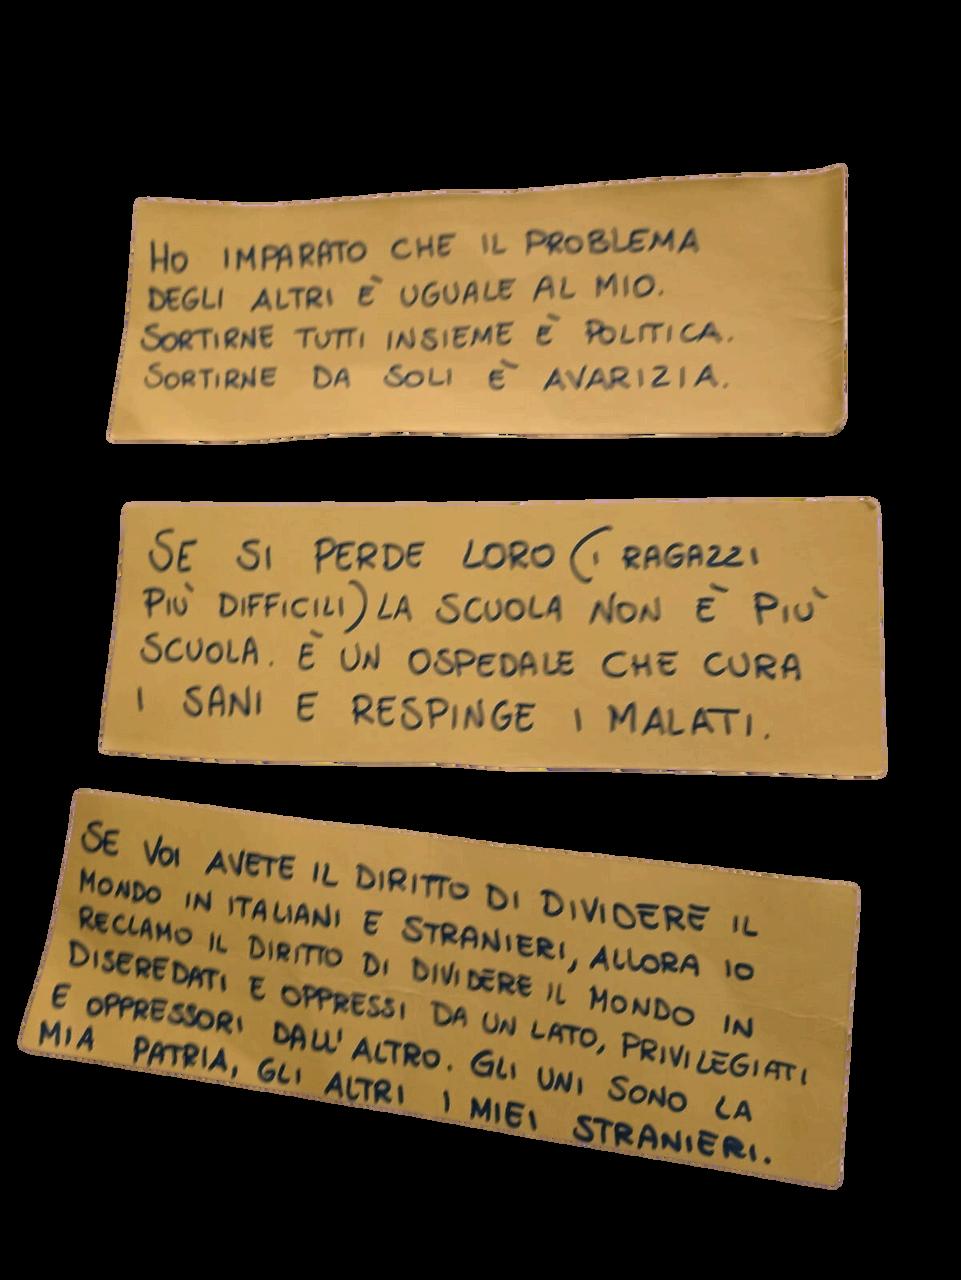 HO IMPARATO CHE IL PROBLEMA
DEGLI ALTRI È UGUALE AL MIO.
SORTIRNE TUTTI INSIEME È POLITICA.
SORTIRNE DA SOLI È AVARIZIA.
SE SI PERDE LORO (I RAGAZZI
PIÙ DIFFICILI) LA SCUOLA NON È PIÙ
SCUOLA. È UN OSPEDALE CHE CURA
I SANI E RESPINGE I MALATI.
SE VOI AVETE IL DIRITTO DI DIVIDERE IL
MONDO IN ITALIANI E STRANIERI, ALLORA IO
RECLAMO IL DIRITTO DI DIVIDERE IL MONDO IN
DISEREDATI E OPPRESSI DA UN LATO, PRIVILEGIATI
E OPPRESSORI DALL'ALTRO. GLI UNI SONO LA
MIA PATRIA, GLI ALTRI I MIEI STRANIERI.